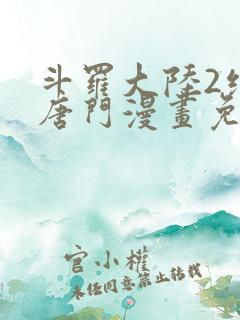 斗羅大陸2絕
唐門漫畫免
官小權
未經同意禁止轉載